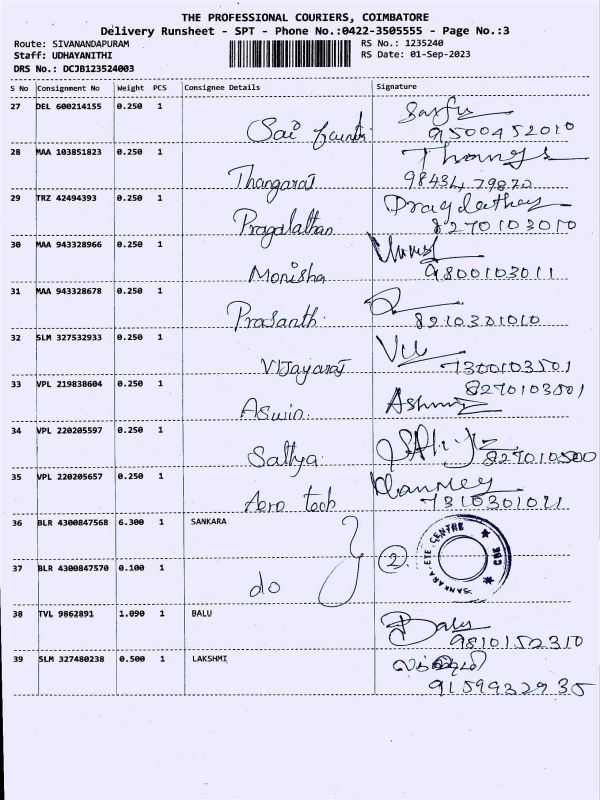 THE PROFESSIONAL COURIERS, COIMBATORE
Delivery Runsheet - SPT - Phone No.:0422-3505555 - Page No.:3
Route: SIVANANDAPURAM
RS No.: 1235240
Staff: UDHAYANITHI
RS Date: 01-Sep-2023
DRS No.: DCJB123524003
S No Consignment No Weight PCS Consignee Details Signature
27 DEL 600214155 0.250 1
Sai
9500452010
28 MAA 103851823 0.250 1
Thangaraj
98434 79870
29 TRZ 42494393 0.250 1
Pragalathan
8270103010
30 MAA 943328966 0.250 1
Monisha
9800103011
31 MAA 943328678 0.250 1
Prasanth
8210301010
32 SLM 327532933 0.250 1
Vijayaraj
7300103501
33 VPL 219838604 0.250 1
8270103501
Aswin
34 VPL 220205597 0.250 1
Sathya
827010500
35 VPL 220205657 0.250 1
Aero tech
7310301011
36 BLR 4300847568 6.300 1 SANKARA
SANKARA EYE CENTRE CBE
2
37 BLR 4300847570 0.100 1
do
38 TVL 9862891 1.090 1 BALU
Balu
9810152310
39 SLM 327480238 0.500 1 LAKSHMI
9159932935